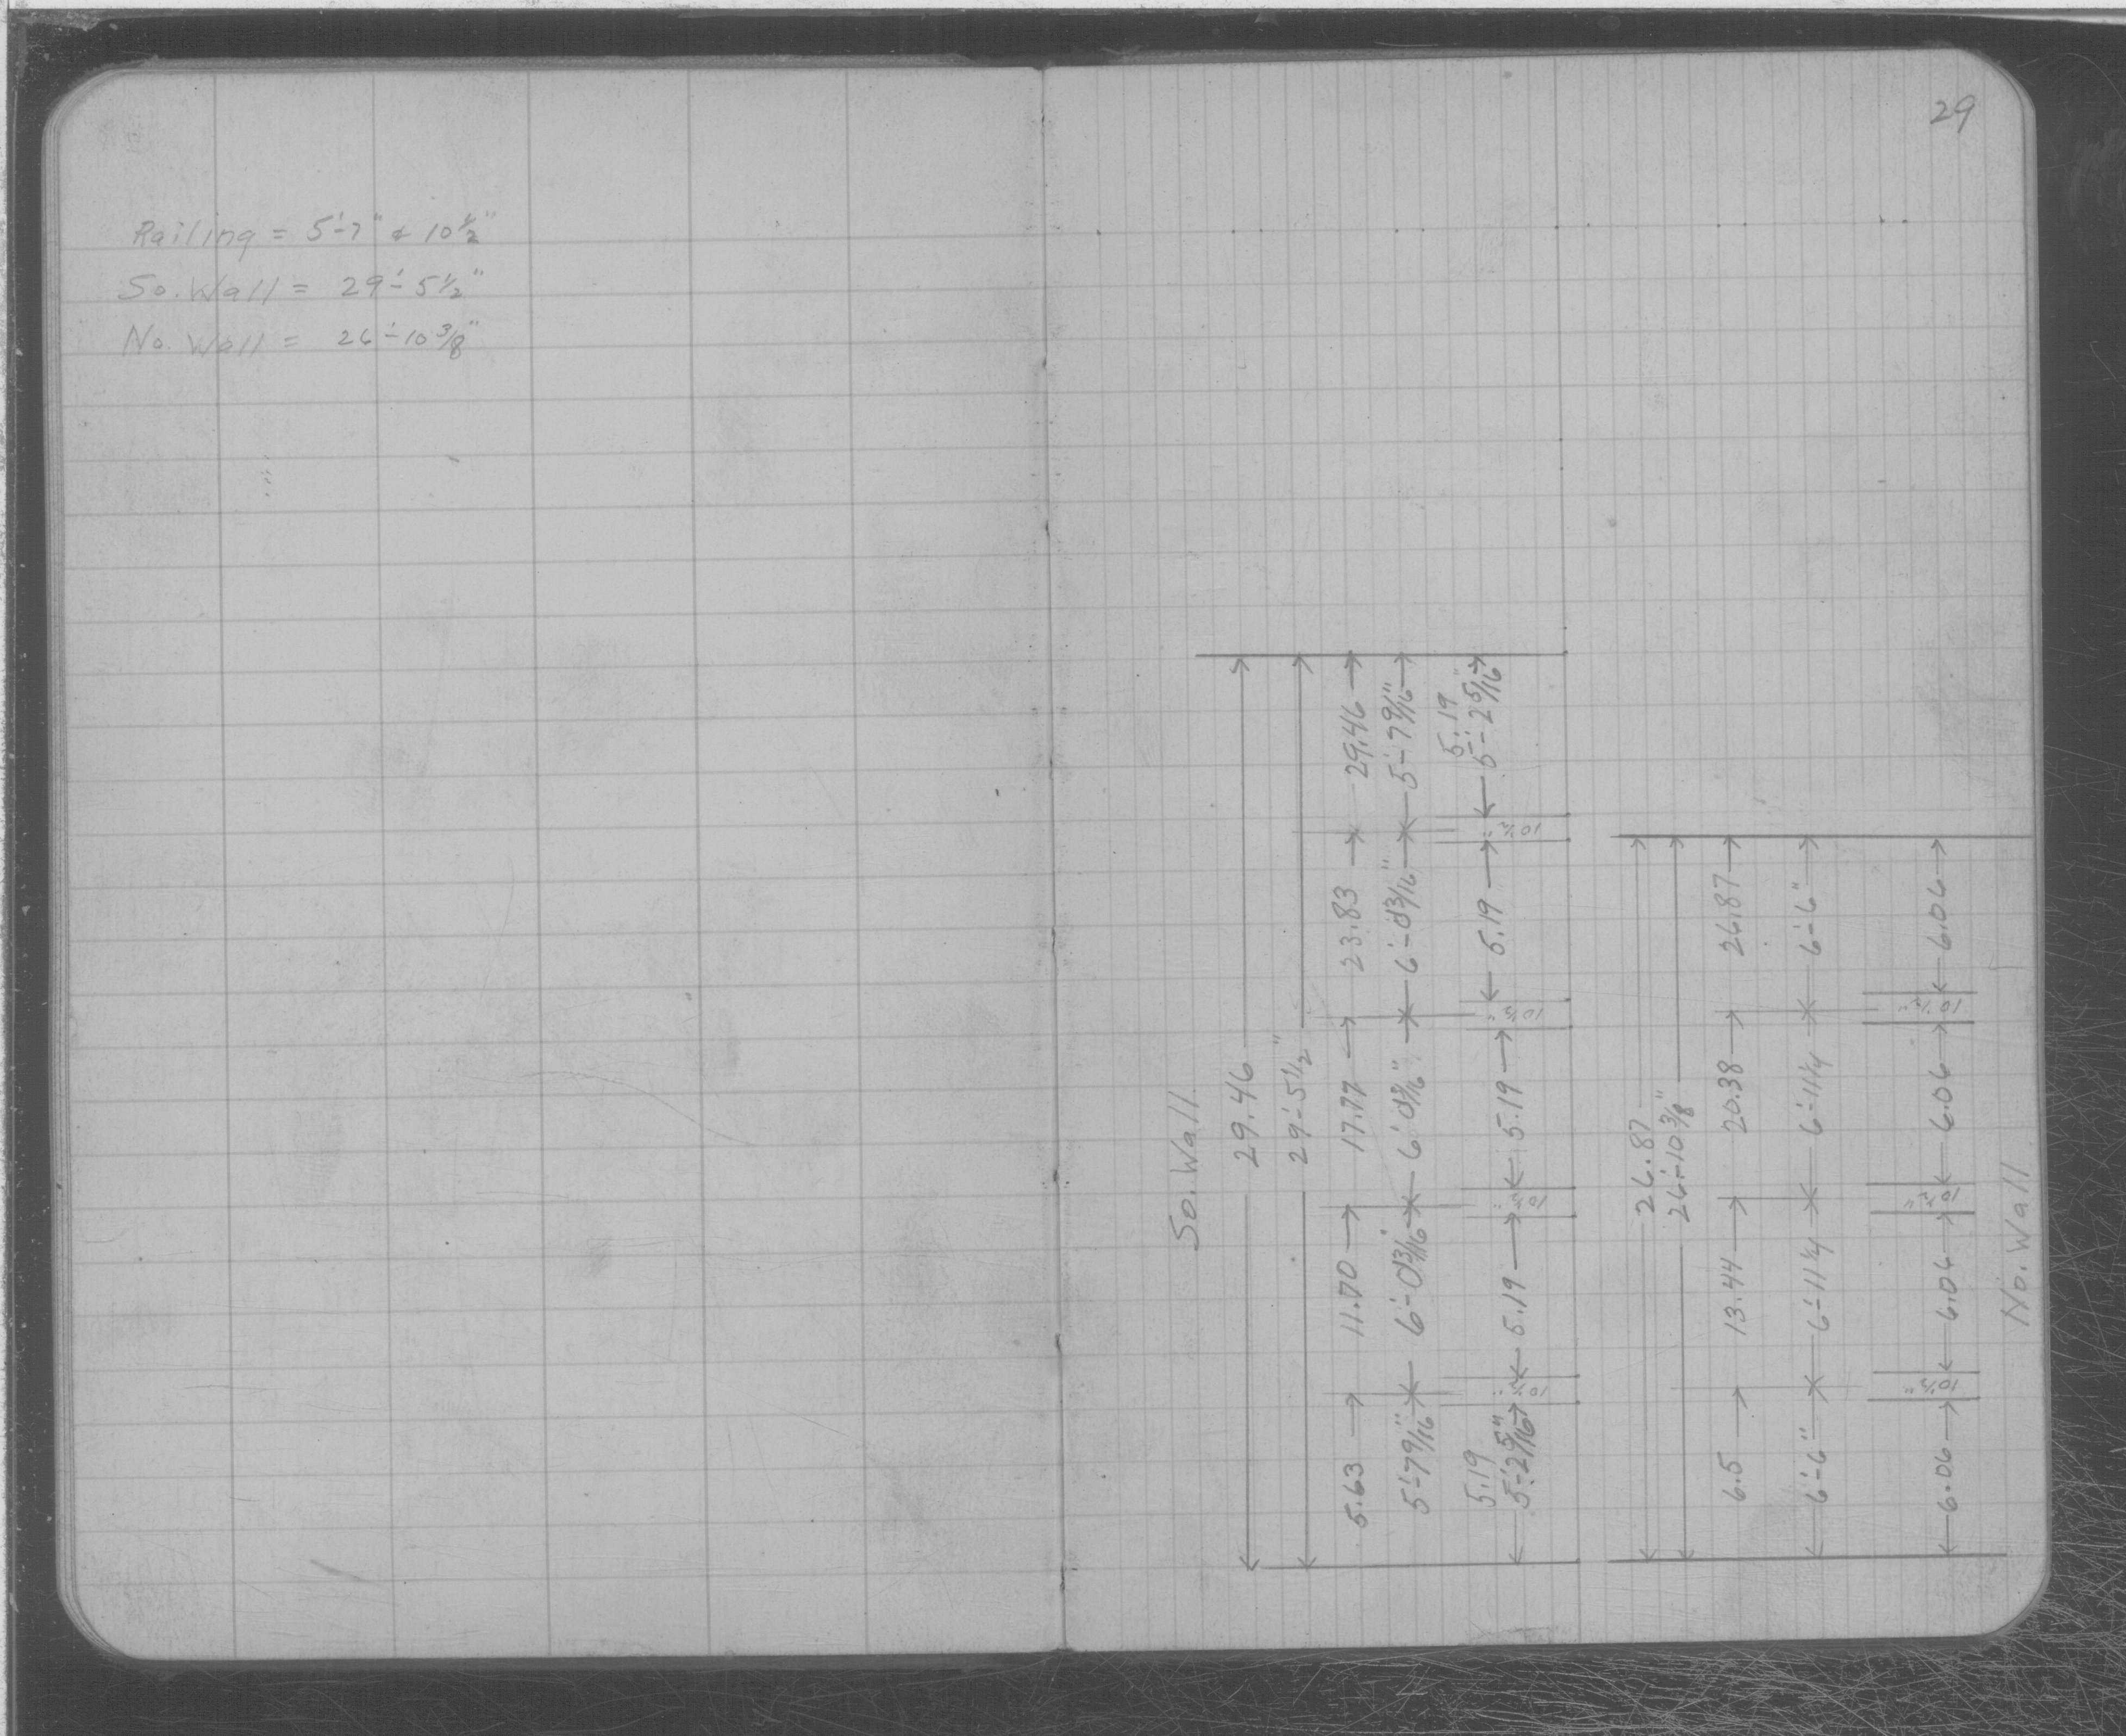 Railing = 5'-7" & 10½"
So. Wall = 29'-5½"
No. Wall = 26'-10⅜"
29
So. Wall.
29.46
29'-5½"
5.63 11.70 17.77 23.83 29.46
5'-7 9/16" 6'-0 13/16" 6'-0 13/16" 6'-0 13/16" 5'-7 9/16"
5.19 5.19
5'-2 5/16" 10½" 5.19 10½" 5.19 10½" 5.19 10½" 5'-2 5/16"
26.87
26'-10⅜"
6.5 13.44 20.38 26.87
6'-6" 6'-11¼ 6'-11¼ 6'-6"
6.06 10½" 6.06 10½" 6.06 10½" 6.06
No. Wall